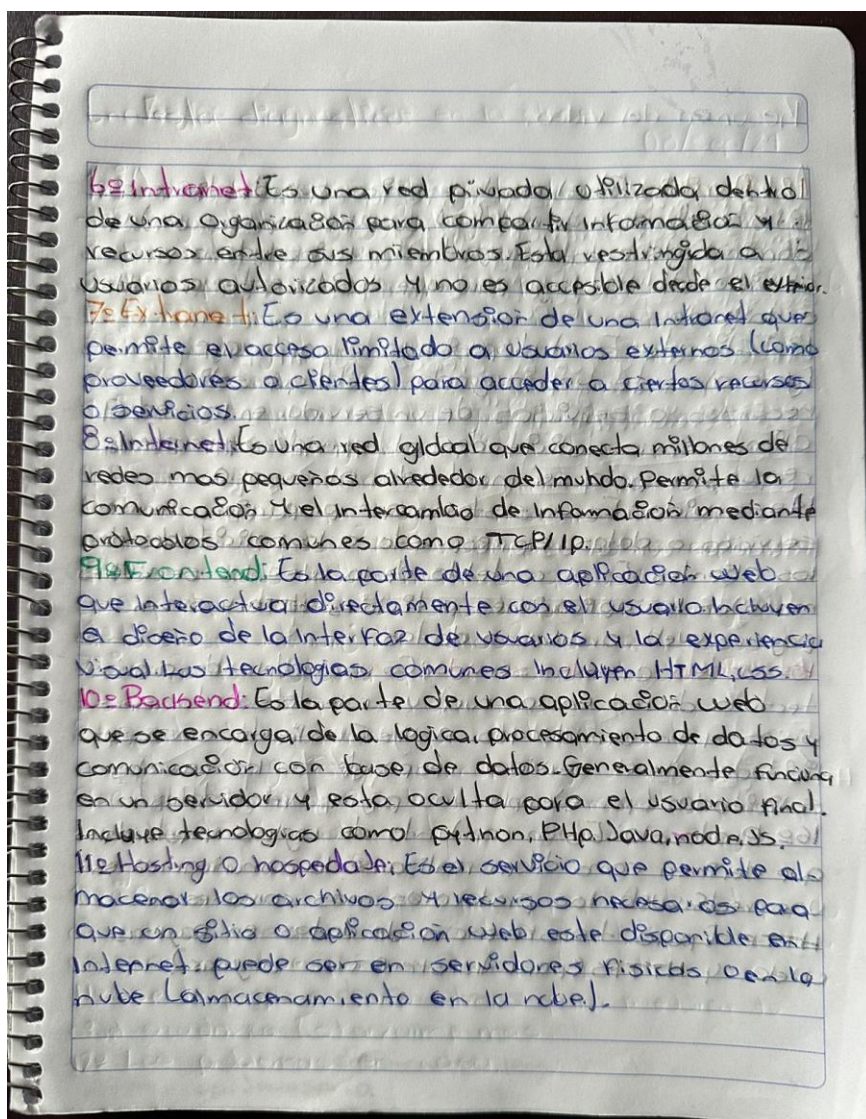 6= Intranet: Es una red privada utilizada dentro
de una organización para compartir información y
recursos entre sus miembros. Esta restringida a
usuarios autorizados y no es accesible desde el exterior.
7= Extranet: Es una extension de una intranet que
permite el acceso limitado a usuarios externos (como
proveedores o clientes) para acceder a ciertos recursos
o servicios.
8= Internet: Es una red gldoal que conecta millones de
redes mas pequeños alrededor del mundo. Permite la
comunicación y el intercambio de información mediante
protocolos comunes como TCP/IP.
9= Frontend: Es la parte de una aplicación web
que interactua directamente con el usuario. Incluyen
el diseño de la interfaz de usuarios y la experiencia
visual. Las tecnologias comunes incluyen HTML, CSS.
10= Backend: Es la parte de una aplicación web
que se encarga de la logica, procesamiento de datos y
comunicación con base de datos. Generalmente funciona
en un servidor y esta oculta para el usuario final.
Incluye tecnologias como python, PHP, Java, node.Js.
11= Hosting o hospedaje: Es el servicio que permite al
macenar los archivos y recursos necesarios para
que un sitio o aplicación web este disponible en
Internet, puede ser en servidores fisicos o en la
nube (almacenamiento en la nube).